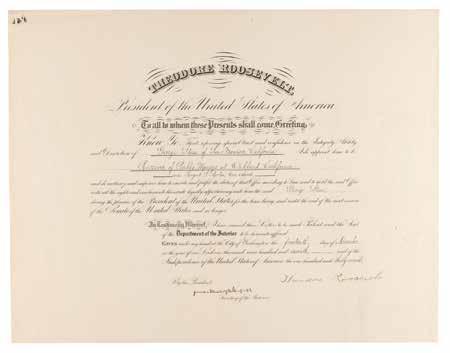 THEODORE ROOSEVELT,
President of the United States of America
To all to whom these Presents shall come, Greeting:
Know Ye, that reposing special trust and confidence in the Integrity, Ability
and Discretion of George Stone of San Francisco, California I do appoint him to be
Receiver of Public Moneys at California
and do authorize and empower him to execute and fulfill the duties of that Office according to law and to hold the said Office
with all the rights and emoluments thereunto legally appertaining unto him the said George Stone
during the pleasure of the President of the United States for the time being, and until the end of the next session
of the Senate of the United States and no longer.
In Testimony Whereof, I have caused these Letters to be made Patent and the Seal
of the Department of the Interior to be hereunto affixed.
Given under my hand at the City of Washington the day of
in the year of our Lord one thousand nine hundred and and of the
Independence of the United States of America the one hundred and thirty
By the President: Theodore Roosevelt
Secretary of the Interior.